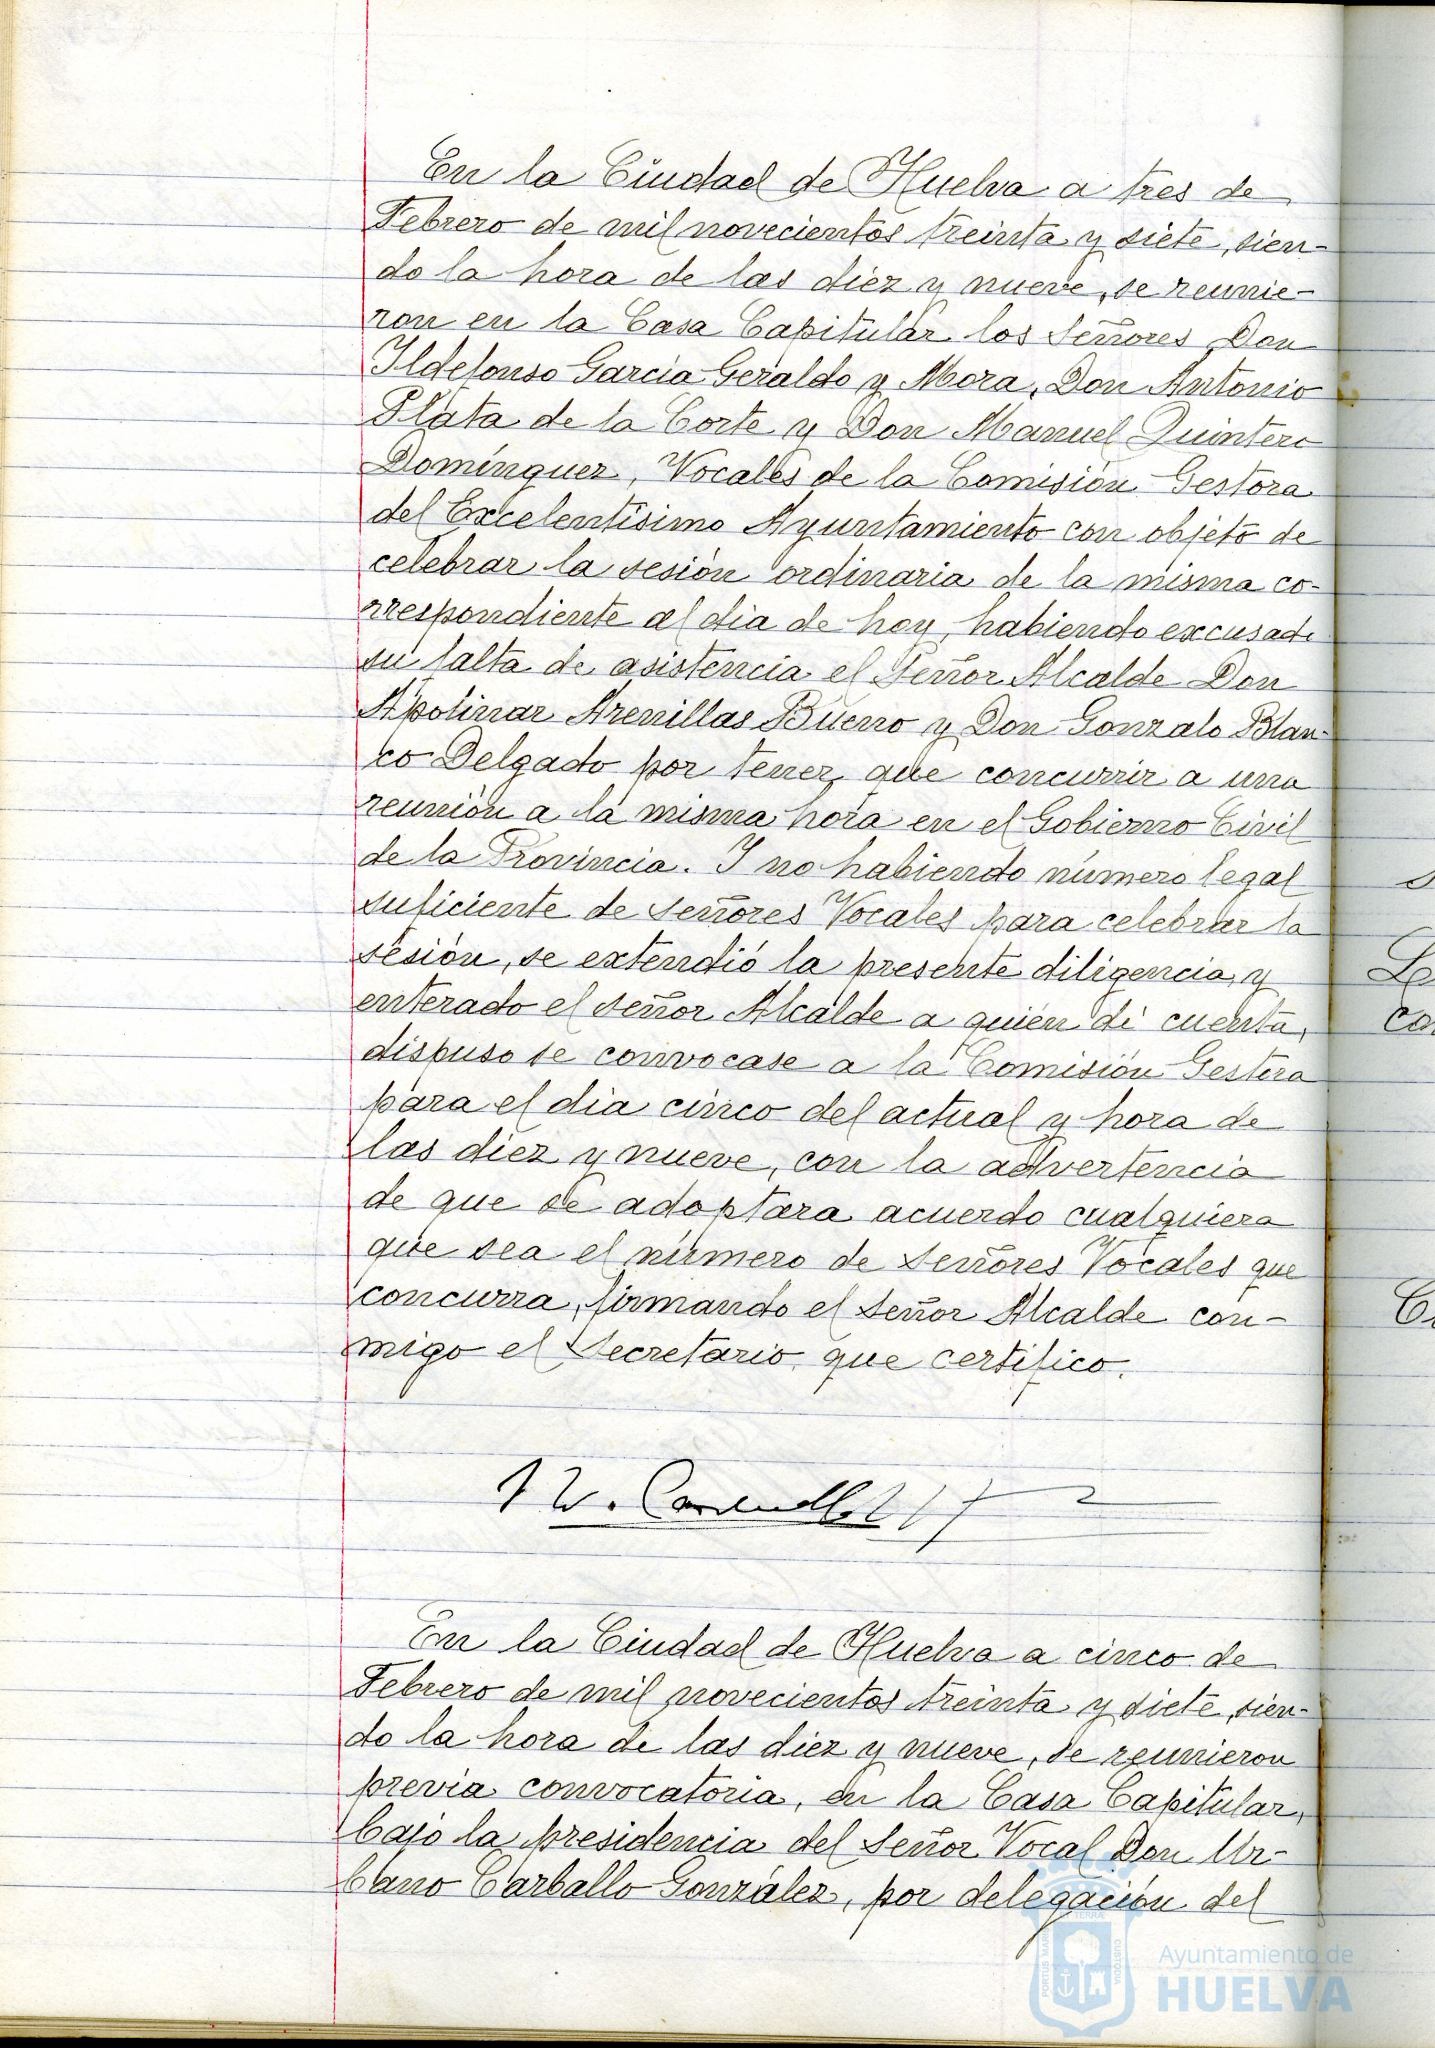 En la Ciudad de Huelva a tres de
Febrero de mil novecientos treinta y siete, sien-
do la hora de las diez y nueve, se reunie-
ron en la Casa Capitular los señores Don
Ildefonso García Geraldo y Mora, Don Antonio
Plata de la Corte y Don Manuel Quintero
Domínguez, Vocales de la Comisión Gestora
del Excelentísimo Ayuntamiento con objeto de
celebrar la sesión ordinaria de la misma co-
rrespondiente al día de hoy, habiendo excusado
su falta de asistencia el Señor Alcalde Don
Apolinar Arenillas Bueno y Don Gonzalo Blan-
co Delgado por tener que concurrir a una
reunión a la misma hora en el Gobierno Civil
de la Provincia. Y no habiendo número legal
suficiente de señores Vocales para celebrar la
sesión, se extendió la presente diligencia, y
enterado el señor Alcalde a quién dí cuenta,
dispuso se convocase a la Comisión Gestora
para el día cinco del actual y hora de
las diez y nueve, con la advertencia
de que se adoptara acuerdo cualquiera
que sea el número de señores Vocales que
concurra, firmando el señor Alcalde con-
migo el Secretario, que certifico.
En la Ciudad de Huelva a cinco de
Febrero de mil novecientos treinta y siete, sien-
do la hora de las diez y nueve, se reunieron
previa convocatoria, en la Casa Capitular,
bajo la presidencia del señor Vocal Don Ur-
bano Carballo González, por delegación del
Ayuntamiento de
HUELVA